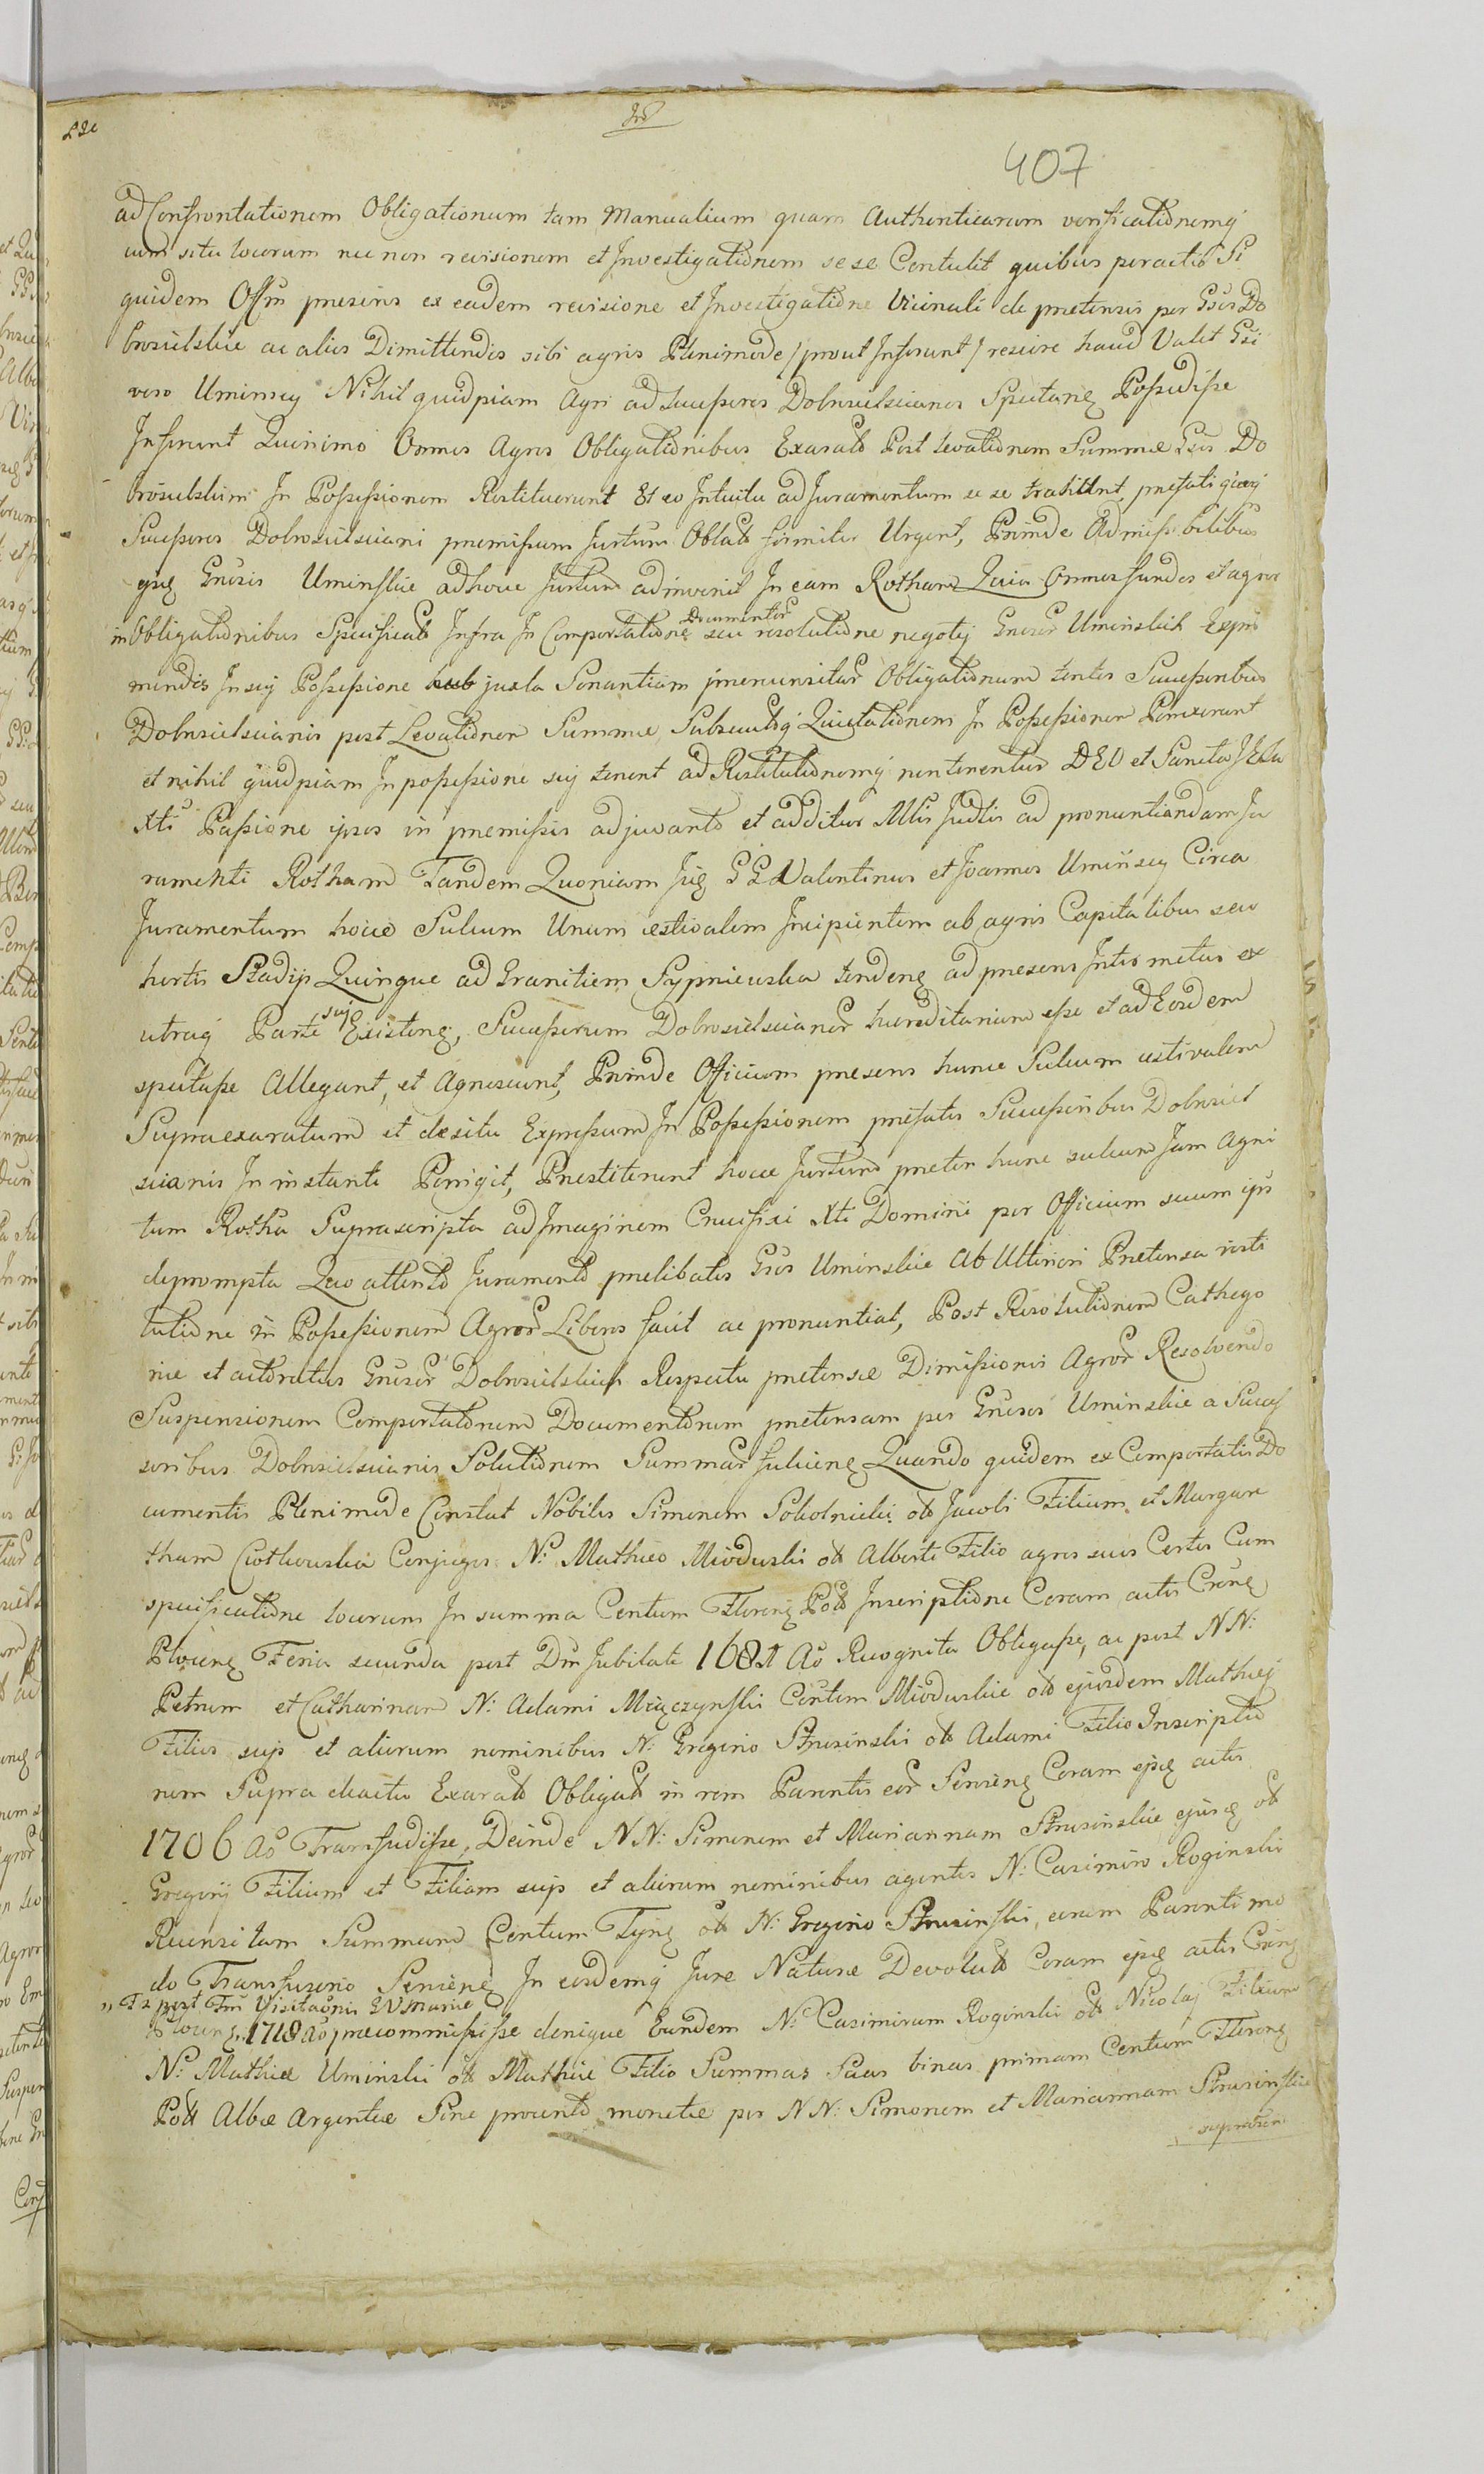 407
ad Confrontationem Obligationum tam Manualium quam Authenticarum verificationemq
cum situ locorum nec non revisionem et Investigationem sese Contulit quibus peractis Si
quidem Offm presens ex eadem revisione et Investigatione Vicinali de pretensis per Gsos Do
brosielskie ac alios Dimittendis sibi agris Plenimode /prout Inferunt/ rescire haud Valet Gsi
vero Uminscy Nihil quidpiam Agri ad Successores Dobrosielscianos Spectan Possidisse
Inferunt Quinimo Omnes Agros Obligationibus Exarat Post levationem Summae Gsis Do
brosielskim In Possessionem Restituerunt Et eo Intuitu ad Juramentum se se trahunt, prefati
Successores Dobrosielsciani premissum Jurtum Oblat firmiter Urgent, Proinde Admissibilibus
Gnosis Uminskie adhocce Jurtum adinvenit In eam Rotham Quia Omnes fundos et agros
in Obligationibus Specificat Infra In Comportatione Documentor seu resolutione negoty Gnosor Uminskich Expri
mendis In sui Possessione juxta Sonantiam prenunsitar Obligationum tentos Successoribus
Dobrosielscianis post Levationem Summae, Subsecutq Quietationem In Possessionem Porrexerunt
et nihil quidpiam In possessione sui tenent ad Restitutionemq non tenentur DEO et Sancta JESu
Xti Passione ipsos in premissis adjuvante et additur Mlis Judlis ad pronuntiandam Ju
ramenti Rotham Tandem Quoniam GG Valentinus et Joannes Uminscy Circa
Juramentum hocce Sulcum Unum aestivalem Incipientem ab agris Capitalibus seu
hortis Stadys Quinque ad Granitiem Sypniewska tenden ad presens Inter metas ex
utraq Parte sui Existen, Successorum Dobrosielscianor haereditarium esse et ad Eosdem
spectasse Allegant, et Agnoscunt, Proinde Officium presens hunc Sulcum aestivalem
Supraexaratum et de situ Expressum In Possessionem prefatis Successoribus Dobrosiel
scianis In instanti Porrigit, Prestiterunt hocce Jurtum preter hunc sulcum Jam Agni
tum Rotha Suprascripta ad Imaginem Crucifixi Xti Domini per Officium suum ips
deprompta Quo attento Juramento prelibatos Gsos Uminskie Ab Ulteriori Pretensa resti
tutione in Possessionem Agror Liberos facit ac pronuntiat, Post Resolutionem Cathego
riae et actoratus Gnosor Dobrosielskich Respectu pretensae Dimissionis Agror Resolvendo
Suspensionem Comportatorum Documentorum pretensam per Gnosos Uminskie a Succes
soribus Dobrosielscianis Solutionem Summar facien Quando quidem ex Comportatis Do
cumentis Plenimode Constat Nobiles Simonem Sokolnicki olt Jacobi Filium et Margare
tham Conjuges N: Mathaeo Mioduski olt Alberti Filio agros suos Certos Cum
specificatione locorum In summa Centum Floren Pol Inscriptione Coram actis
Plocien Feria secunda post Dm Jubilate 1681 Ao Recognita Obligasse, ac post NN:
Petrum et Catharinam N: Adami Mrączynski Contem Mioduskie olt ejusdem Mathaei
Filios suis et aliorum nominibus N: Gregorio Strusinski olt Adami Filio Inscriptio
nem Supra de actu Exarat Obligat in rem Parentis eor Servien Coram actis
1706 Ao Transfudisse, Deinde NN: Simonem et Mariannam Strusinskie olt
Gregorij Filium et Filiam suis et aliorum nominibus agentes N: Casimiro Roginski
Recensitam Summam Centum olt N: Gregorio Strusinski, eorum Parenti mo
do Transfusorio Servien In eosdemq Jure Naturae Devolut Coram actis
Fa post Fm Visitaonis BVMariae
Plocien 1718 Ao praecommisisse denique Eundem N: Casimirum Roginski olt Nicolaj Filium
N: Mathiae Uminski olt Mathiae Filio Summas Suas binas primam Centum Floren
Pol Albae Argenteae Sine provento monetae per NN: Simonem et Mariannam Strusinskie